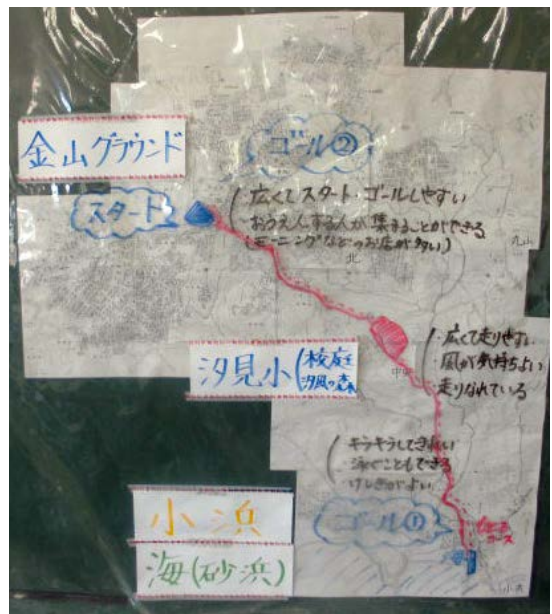 金山グラウンド
ゴール②
スタート
広くてスタート・ゴールしやすい
おうえんする人が集まることができる
(モーニングなどのお店が多い)
丸山
北
汐見小(校庭
汐風の森
中央
・広くて走りやすい
・風が気持ちよい
走りなれている
キラキラしてきれい
・泳ぐこともできる
けしきがよい
小浜
海(砂浜)
ゴール①
コース
小浜